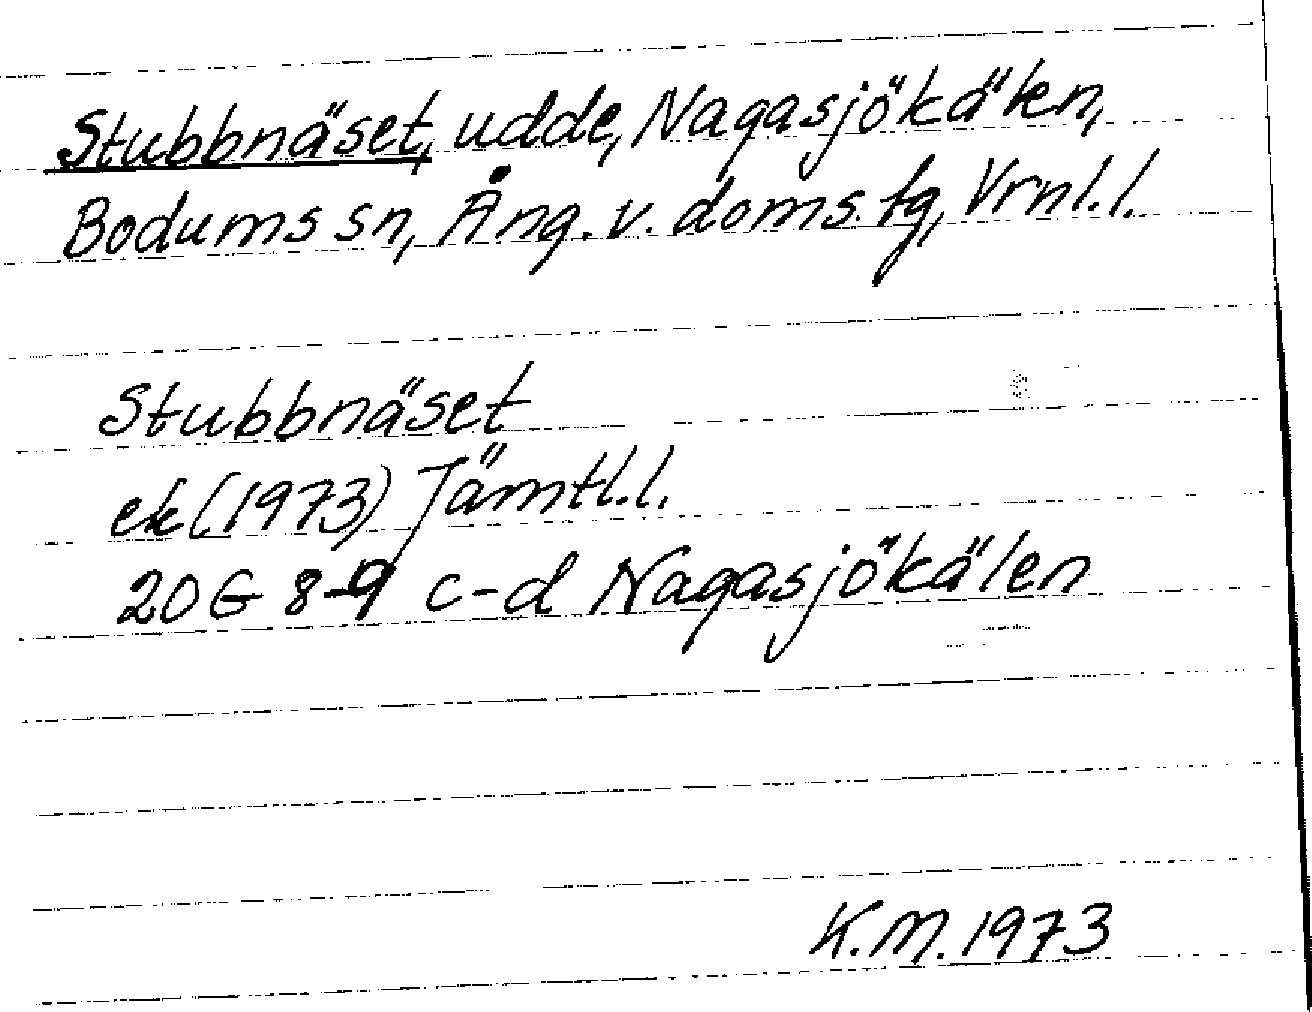 Stubbnäset, udde, Nagasjökälen,
Bodums sn, Ång. v. doms. tg, Vrnl.l.
Stubbnäset
ek (1973) Jämtl.l.
20G 8-9 c-d Nagasjökälen
K.M. 1973